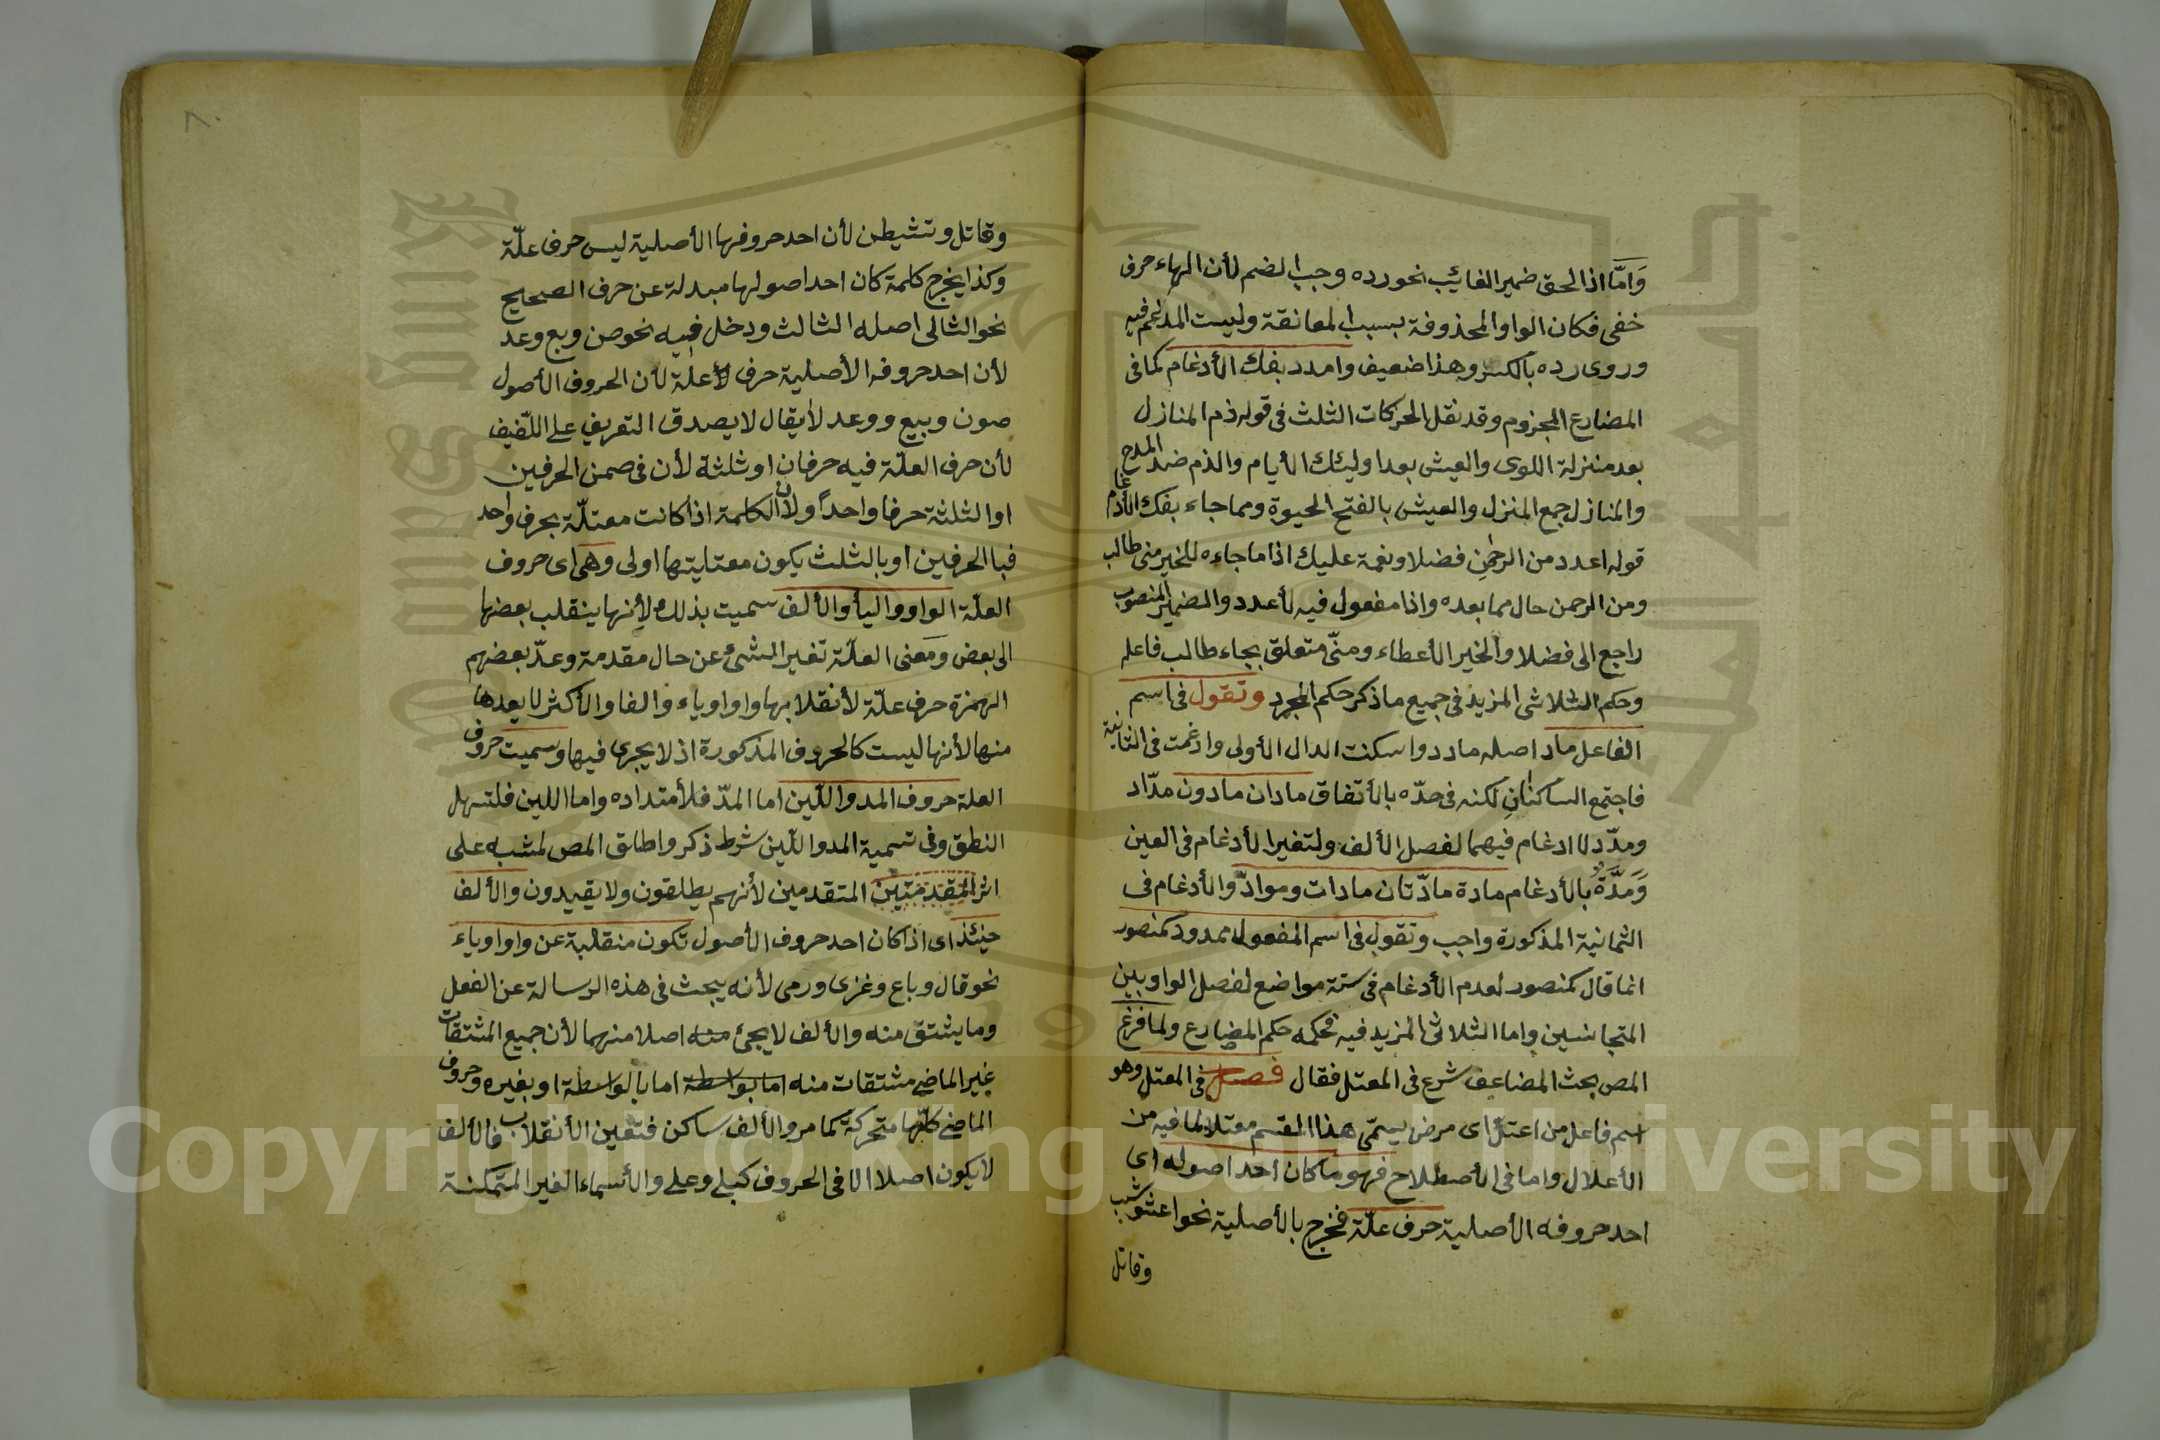 وَاَمَّا اذا لحق ضمير الغائب نحو رده وجب الضم لأن الهاء حرف
خفى فكان الواو المحذوفة بسبب المعانقة وليت المدغم فيه
وروى رده بالكسر وهذا ضعيف وامدد بفك الأدغام كما فى
المضارع المجزوم وقد نقل الحركات الثلث فى قوله ذم المنازل
بعد منزلة اللوى والعيش بعد اولئك الأيام والذم ضد المدح
والمنازل جمع المنزل والعيش بالفتح الحيوة ومما جاء بفك الأدغام
قوله اعدد من الرحمن فضلا ونعمة عليك اذا ما جاءه للخير منى طالب
ومن الرحمن حال مما بعده واذا مفعول فيه لأعدد والضمير المنصوب
راجع الى فضلا والخير الأعطاء ومنّى متعلق بجاء طالب فاعله
وحكم الثلاثى المزيد فى جميع ما ذكر حكم المجرد وتقول فى اسم
الفاعل ماد اصله مادد واسكنت الدال الأولى وادغمت فى الثانية
فاجتمع الساكنان لكنه فى حدّه بالأتفاق مادان مادون مدّاد
ومدّد لا ادغام فيهما لفصل الألف ولتغير الأدغام فى العين
وَمَدَّةٌ بالأدغام مادة مادّتان مادات وموادّ والأدغام فى
الثمانية المذكورة واجب وتقول فى اسم المفعول ممدود كمنصور
انما قال كمنصور لعدم الأدغام فى ستة مواضع لفصل الواو بين
المتجانسين واما الثلاثى المزيد فيه فحكمه حكم المضارع ولما فرغ
المص بحث المضاعف شرع فى المعتل فقال فصل فى المعتل وهو
اسم فاعل من اعتلّ اى مرض يسمّى هذا القسم معتلا لما فيه من
الأعلال واما فى الأصطلاح فهو ما كان احد اصوله اى
احد حروفه الأصلية حرف علّة فخرج بالأصلية نحو اعشوشب
وقاتل
٨٠
وقاتل وتشيطن لأن احد حروفها الأصلية ليس حرف علّة
وكذا يخرج كلمة كان احد اصولها مبدلة عن حرف الصحيح
نحو الثالى اصله الثالث ودخل فيه نحو صن وبع وعد
لأن احد حروفه الأصلية حرف علة لأن الحروف الأصول
صون وبيع ووعد لا يقال لا يصدق التعريف على اللّفيف
لأن حرف العلّة فيه حرفان او ثلثة لأن فى ضمن الحرفين
او الثلثة حرفا واحداً ولأن الكلمة اذا كانت معتلّة بحرف واحد
فبا الحرفين او بالثلث يكون معتليتها اولى وهى اى حروف
العلّة الواو واليأ والألف سميت بذلك لأنها ينقلب بعضها
الى بعض ومعنى العلّة تغير الشئ عن حال مقدمة وعدّ بعضهم
الهمزة حرف علّة لأنقلابها واوا وياء والفا والأكثر لا يعدها
منها لأنها ليست كالحروف المذكورة اذ لا يجرى فيها وسميت حروف
العلة حروف المد واللّين اما المدّ فلأمتداده واما اللين فلتسهل
النطق وفى تسمية المد واللّين شرط ذكر واطلق المص لمشبه على
اثر المتقدمتين المتقدمين لأنهم يطلقون ولا يقيدون والألف
حينئذ اى اذا كان احد حروف الأصول تكون منقلبة عن واو او ياء
نحو قال وباع وغزى ورمى لأنه يبحث فى هذه الرسالة عن الفعل
وما يشتق منه والألف لا يجئ منه اصلا منهما لأن جميع المشتقات
غير الماضى مشتقات منه اما بواسطة اما بالواسطة او بغيره وحروف
الماضى كلّها متحركة كما مر والألف ساكن فتعين الأنقلاب فالألف
لا يكون اصلا الا فى الحروف كبلى وعلى والأسماء الغير المتمكنة
Copyright © King Saud University